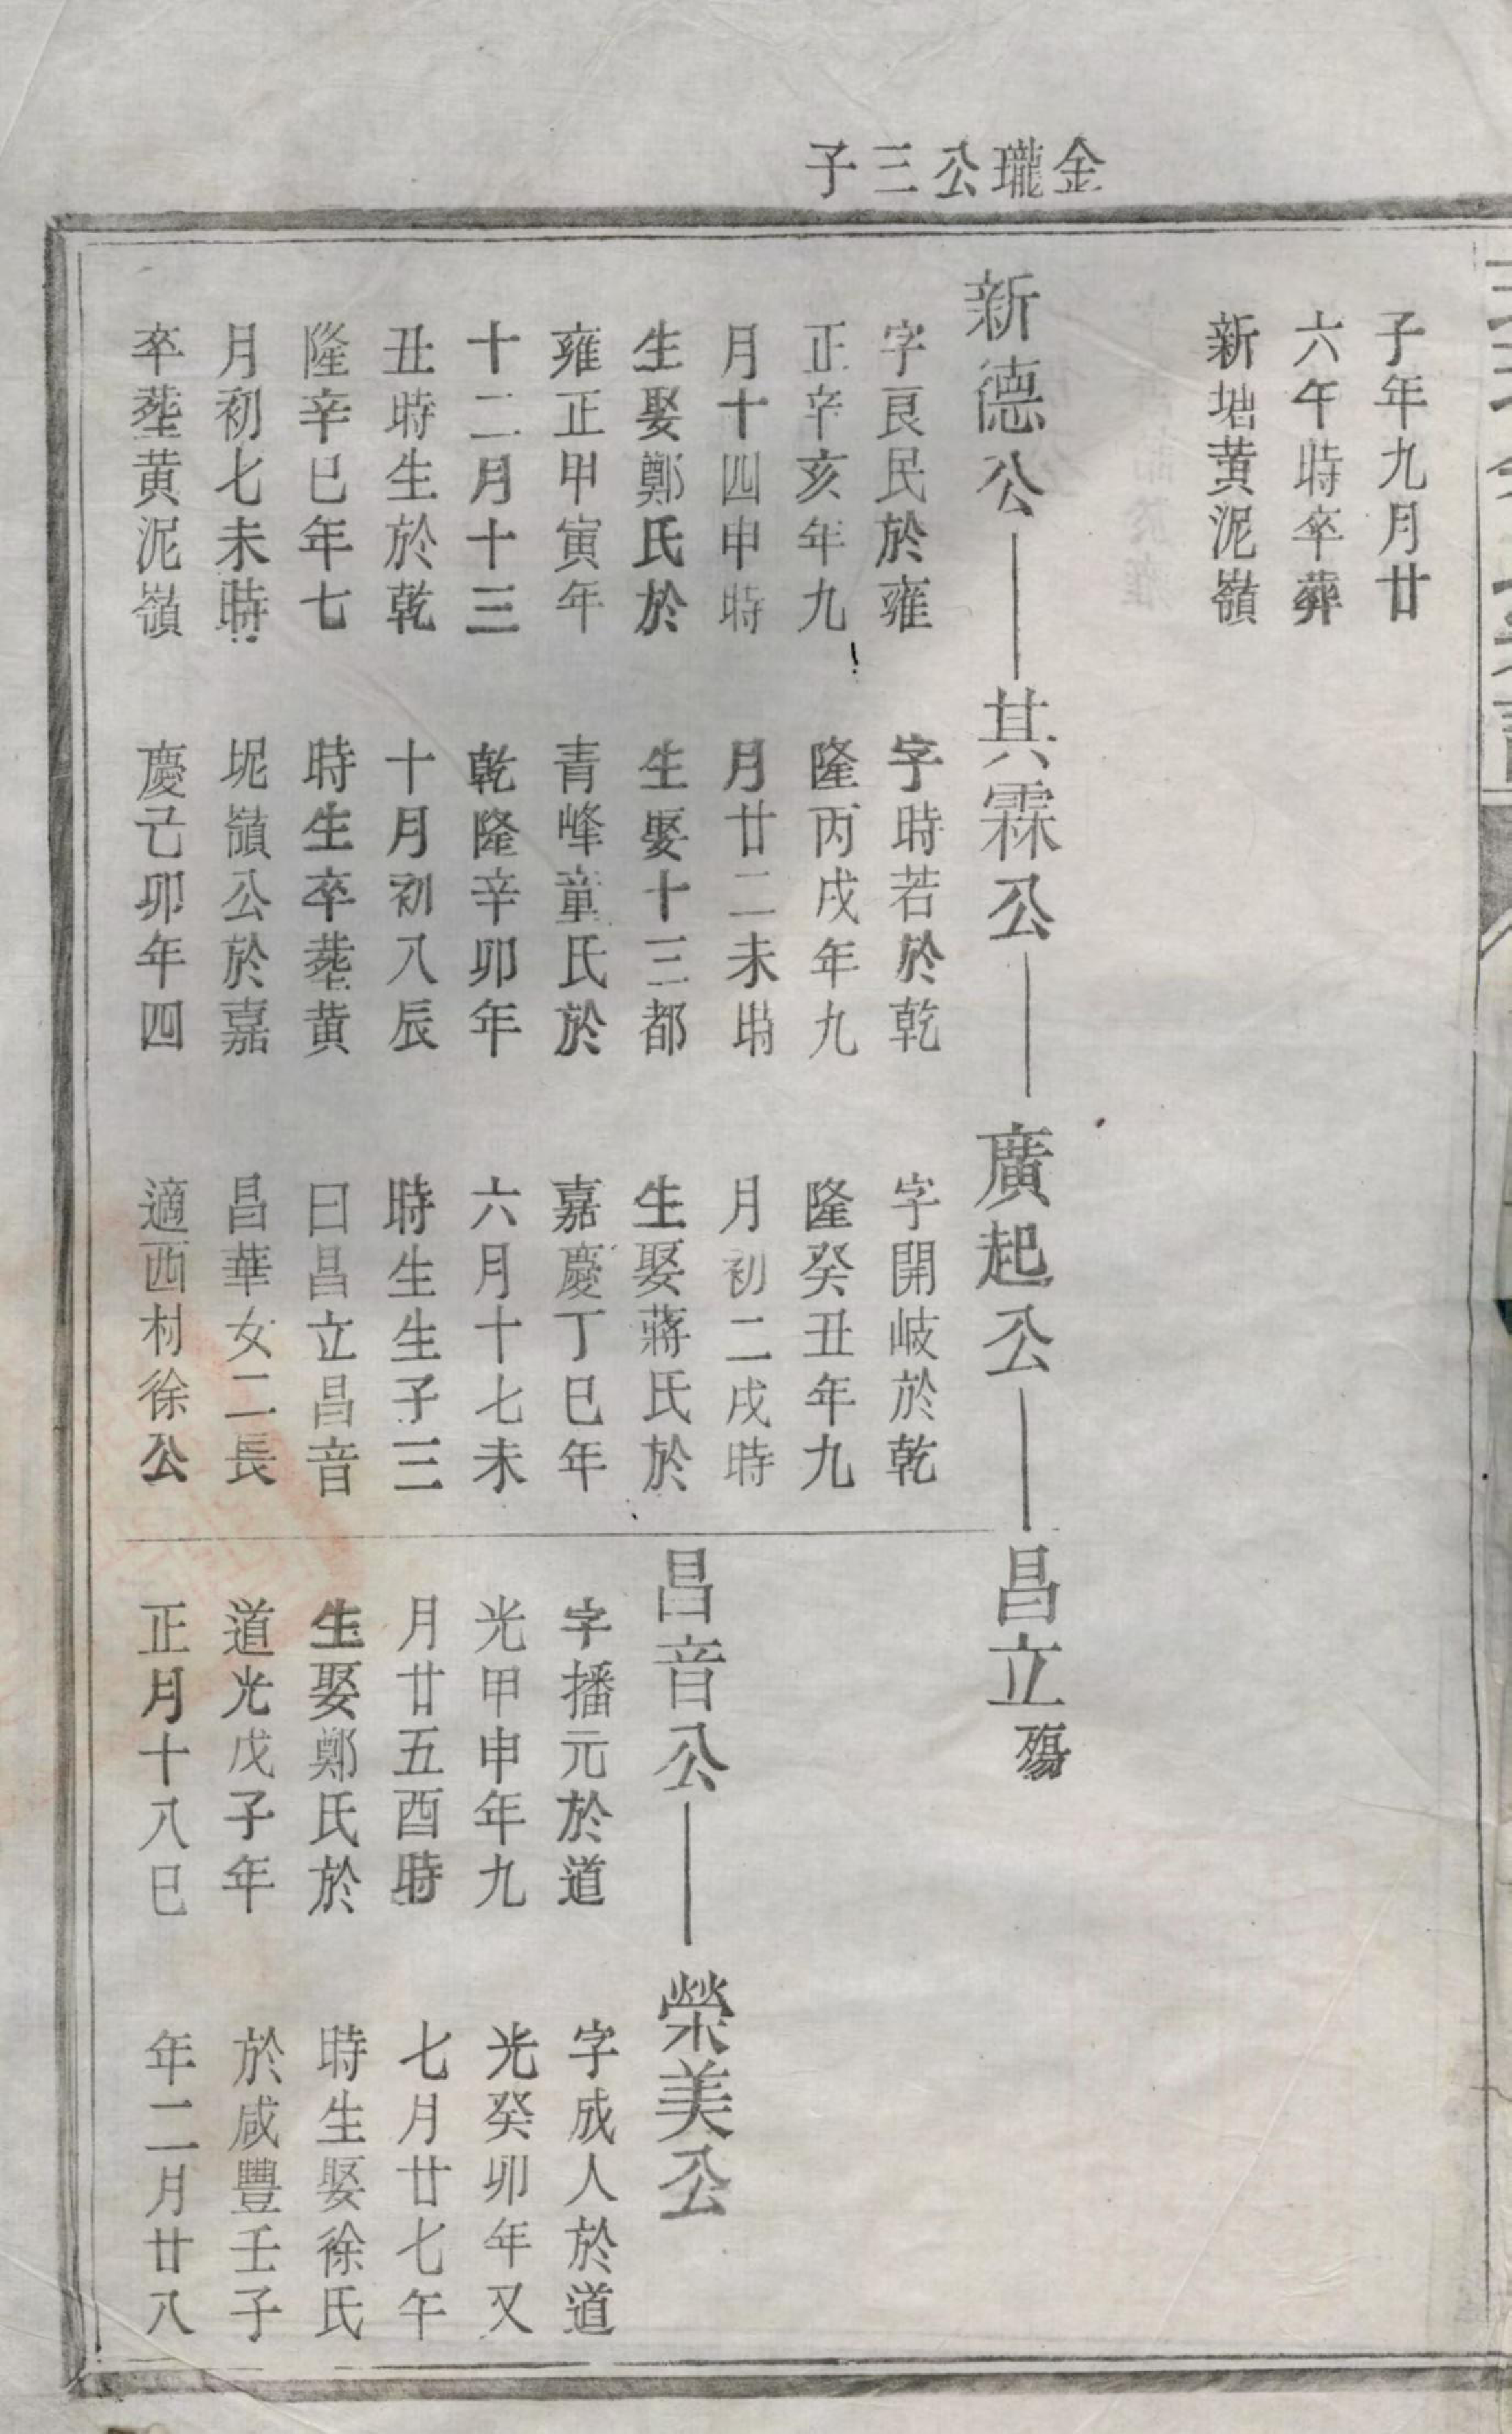 金瓏公三子
子年九月廿
六午時卒葬
新塘黃泥嶺
新德公
字良民於雍
正辛亥年九
月十四申時
生娶鄭氏於
雍正甲寅年
十二月十三
丑時生於乾
隆辛巳年七
月初七未時
卒塟黃泥嶺
其霖公
字時若於乾
隆丙戌年九
月廿二未時
生娶十三都
青峰童氏於
乾隆辛卯年
十月初八辰
時生卒塟黃
坭嶺公於嘉
慶己卯年四
廣起公
字開岐於乾
隆癸丑年九
月初二戌時
生娶蔣氏於
嘉慶丁巳年
六月十七未
時生生子三
曰昌立昌音
昌華女二長
適西村徐公
昌立殤
昌音公
字播元於道
光甲申年九
月廿五酉時
生娶鄭氏於
道光戊子年
正月十八巳
榮美公
字成人於道
光癸卯年又
七月廿七午
時生娶徐氏
於咸豐壬子
年二月廿八